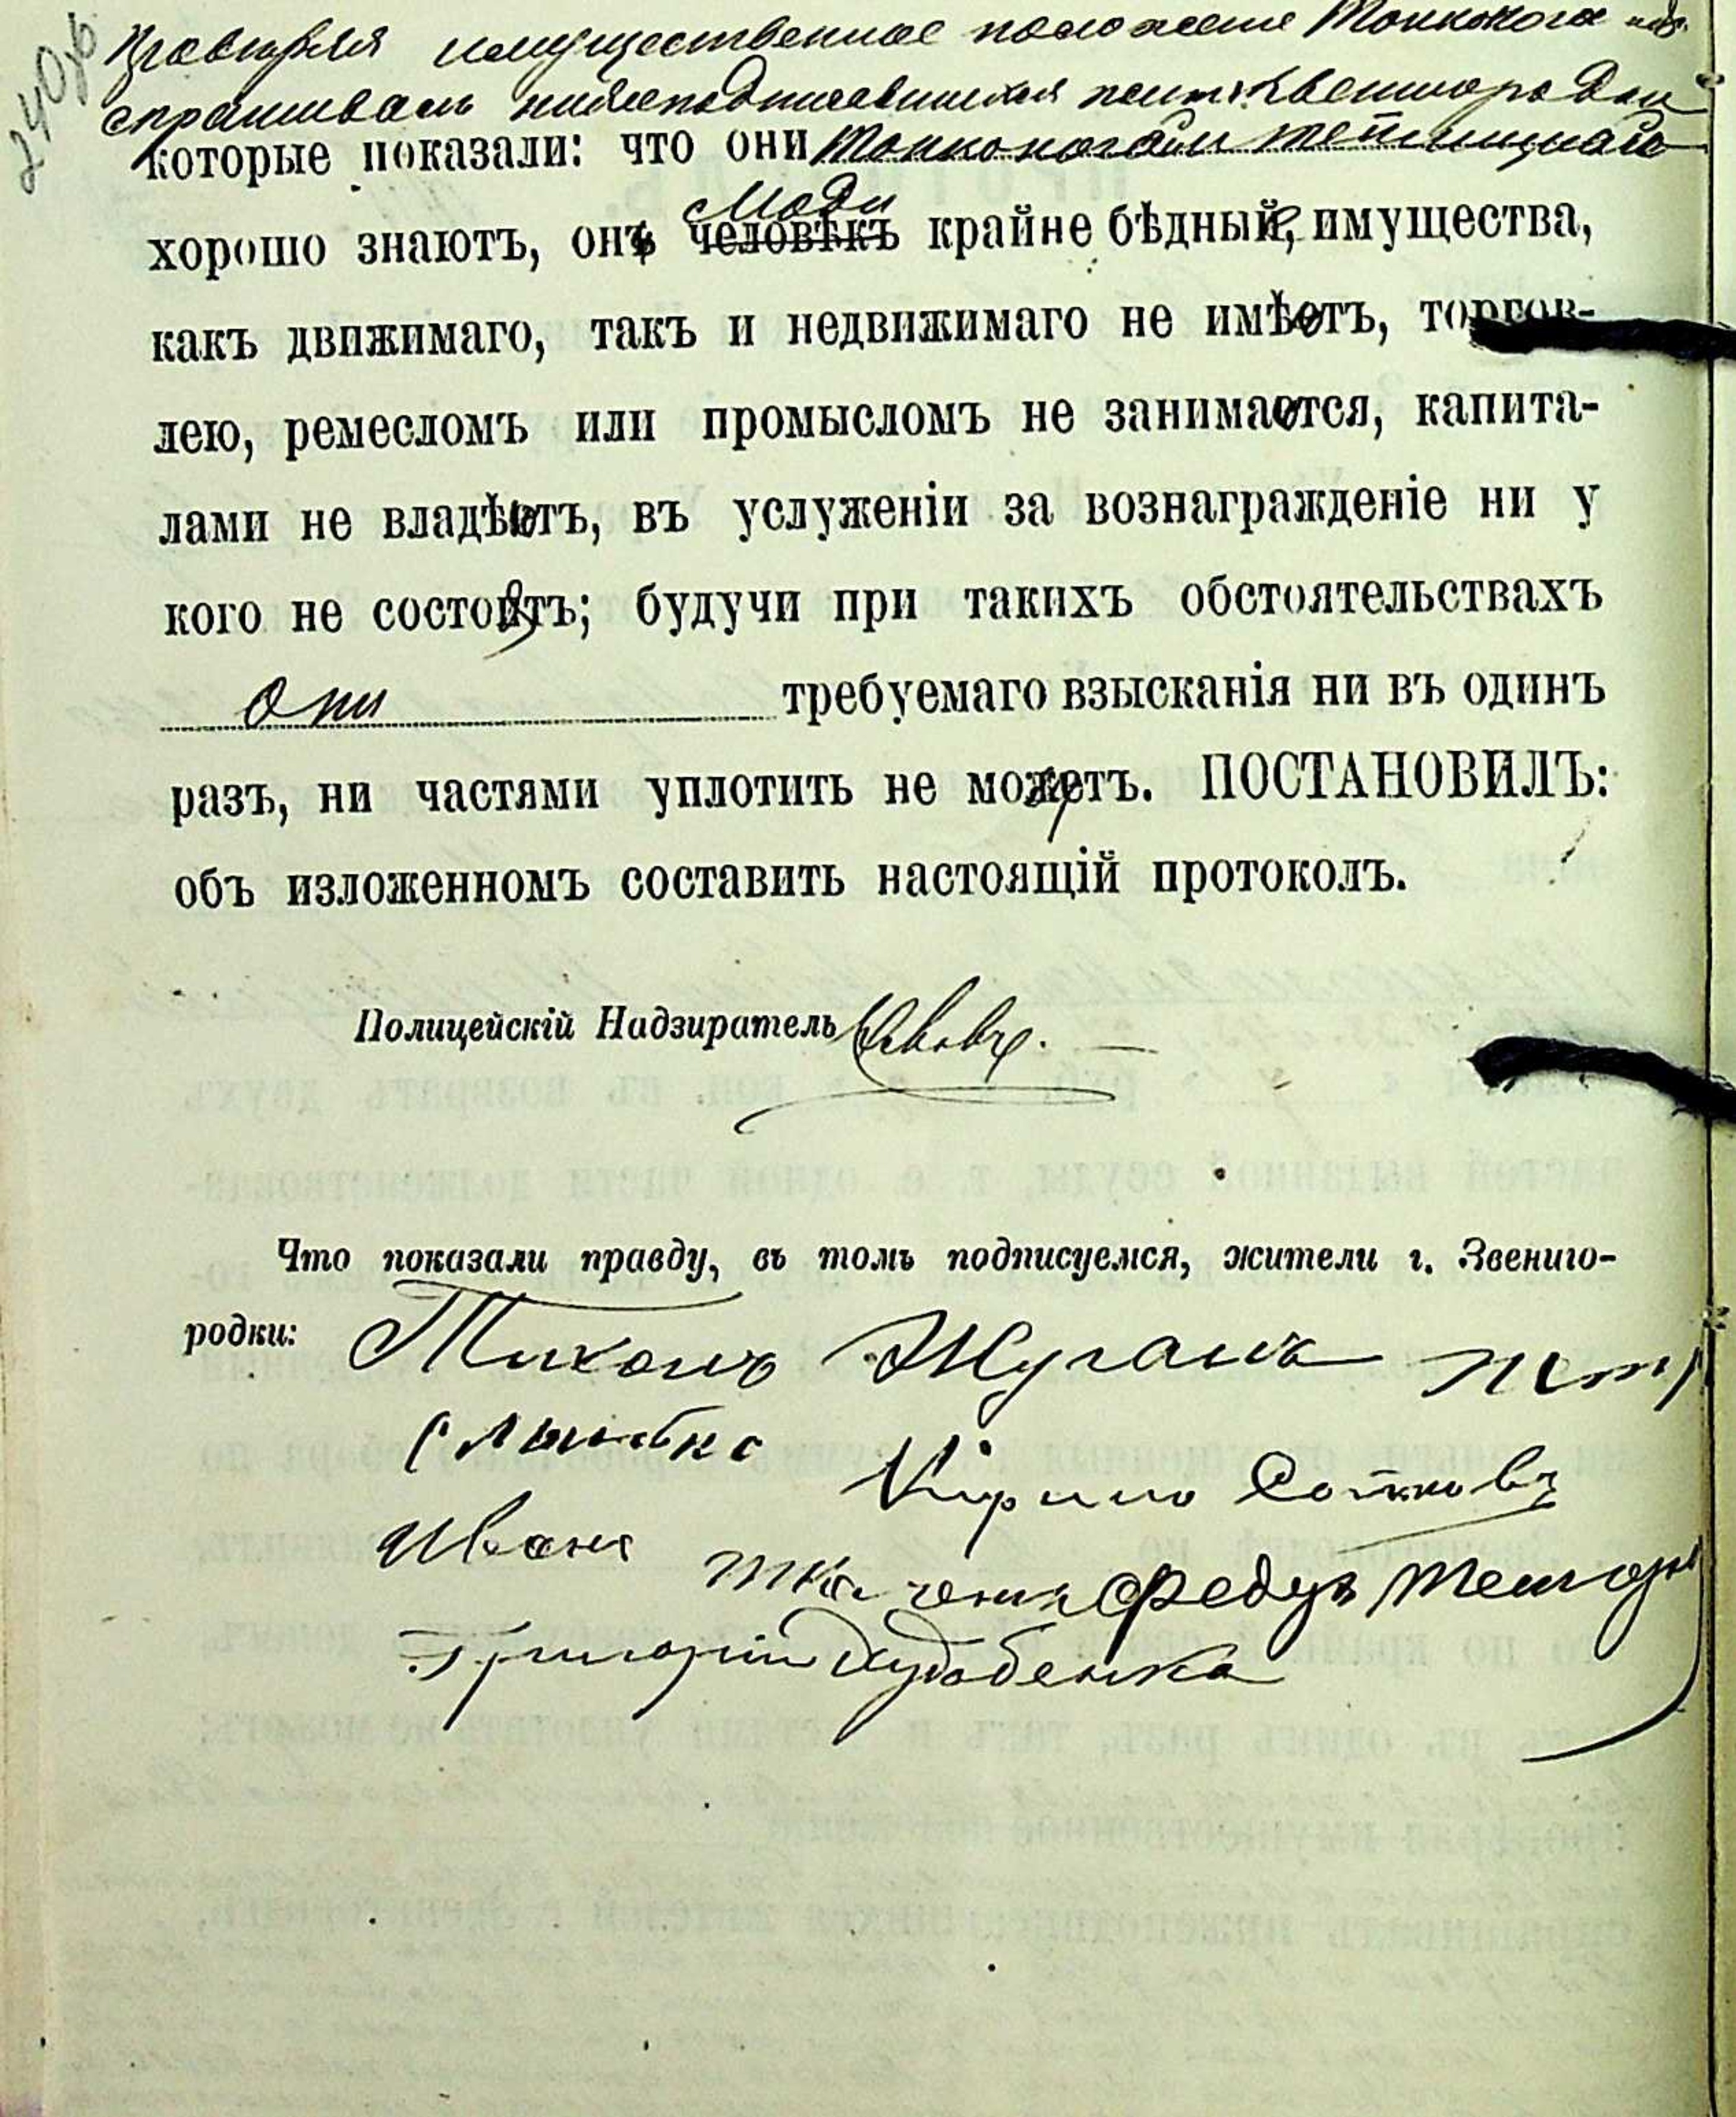 240об
имущественное положение Тонконога
спрашивалъ нижеподписавшихся жит. г. Звенигородки
которые показали: что они Тонконогаго
хорошо знаютъ, они люди крайне бѣдные, имущества,
какъ движимаго, такъ и недвижимаго не имѣютъ, торгов-
лею, ремесломъ или промысломъ не занимаются, капита-
лами не владѣютъ, въ услуженіи за вознагражденіе ни у
кого не состоятъ; будучи при такихъ обстоятельствахъ
они требуемаго взысканія ни въ одинъ
разъ, ни частями уплотить не могутъ. ПОСТАНОВИЛЪ:
объ изложенномъ составить настоящій протоколъ.
Полицейскій Надзиратель
Что показали правду, въ томъ подписуемся, жители г. Звениго-
родки: Тихонъ Жуганъ
Кирило
Иванъ Федуръ
Григорій